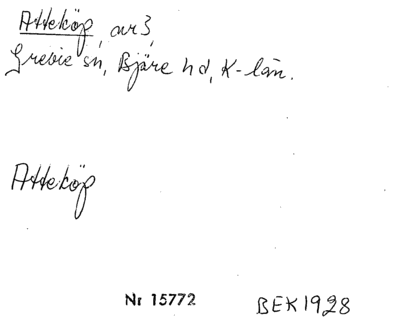 Atteköp, nr 3,
Grevie sn, Bjäre hd, K-län.
Atteköp
Nr 15772 BEK 1928